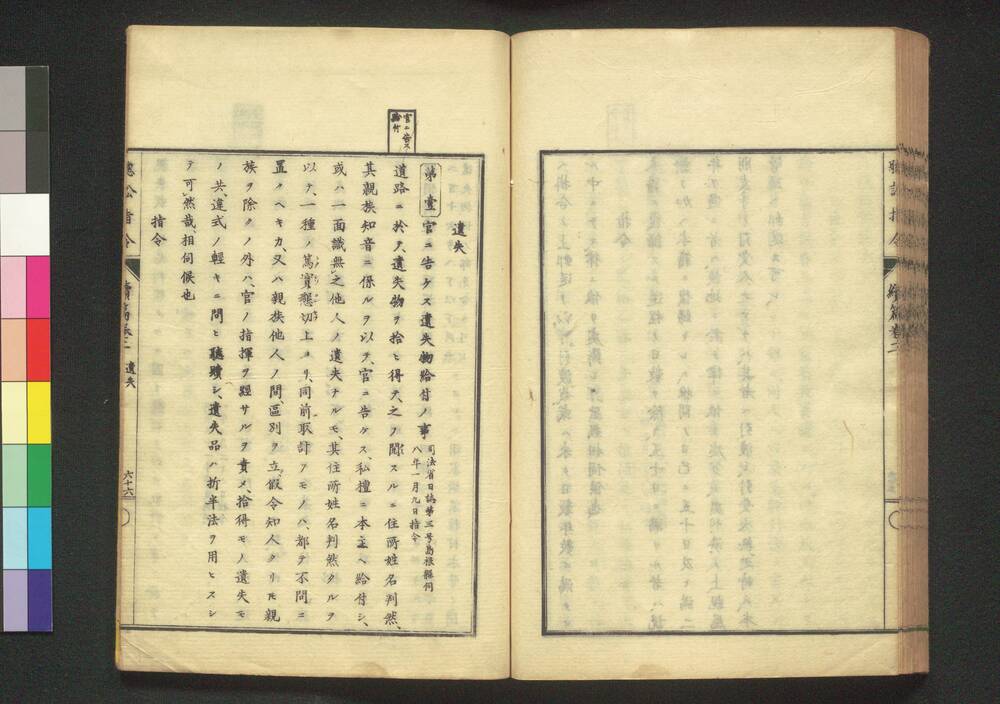 聴訟指令
續篇卷二
官ニ告ケス
給付
遺失
第壹 官ニ告ケス遺失物給付ノ事
司法省日誌第三号島根縣伺
八年一月九日指令
道路ニ於テ、遺失物ヲ拾ヒ得テ、之ヲ閲スルニ住所姓名判然、
其親族知音ニ係ルヲ以テ、官ニ告ケス、私擅ニ本主ヘ給付シ、
或ハ一面識無之他人ノ遺失ナルモ、其住所姓名判然タルヲ
以テ、一種ノ篤實懇切上ヨリ、同前取計フモノハ、都テ不問ニ
置クヘキカ、又ハ親族他人ノ間、區別ヲ立、假令知人タリトモ親
族ヲ除クノ外ハ、官ノ指揮ヲ經サルヲ責メ、拾得モノ遺失モ
ノ共、違式ノ輕キニ問ヒ聽贖シ、遺失品ハ折半法ヲ用ヒスシ
テ可然哉、相伺候也
指令
聴訟指令
續篇卷二
遺失
六十六